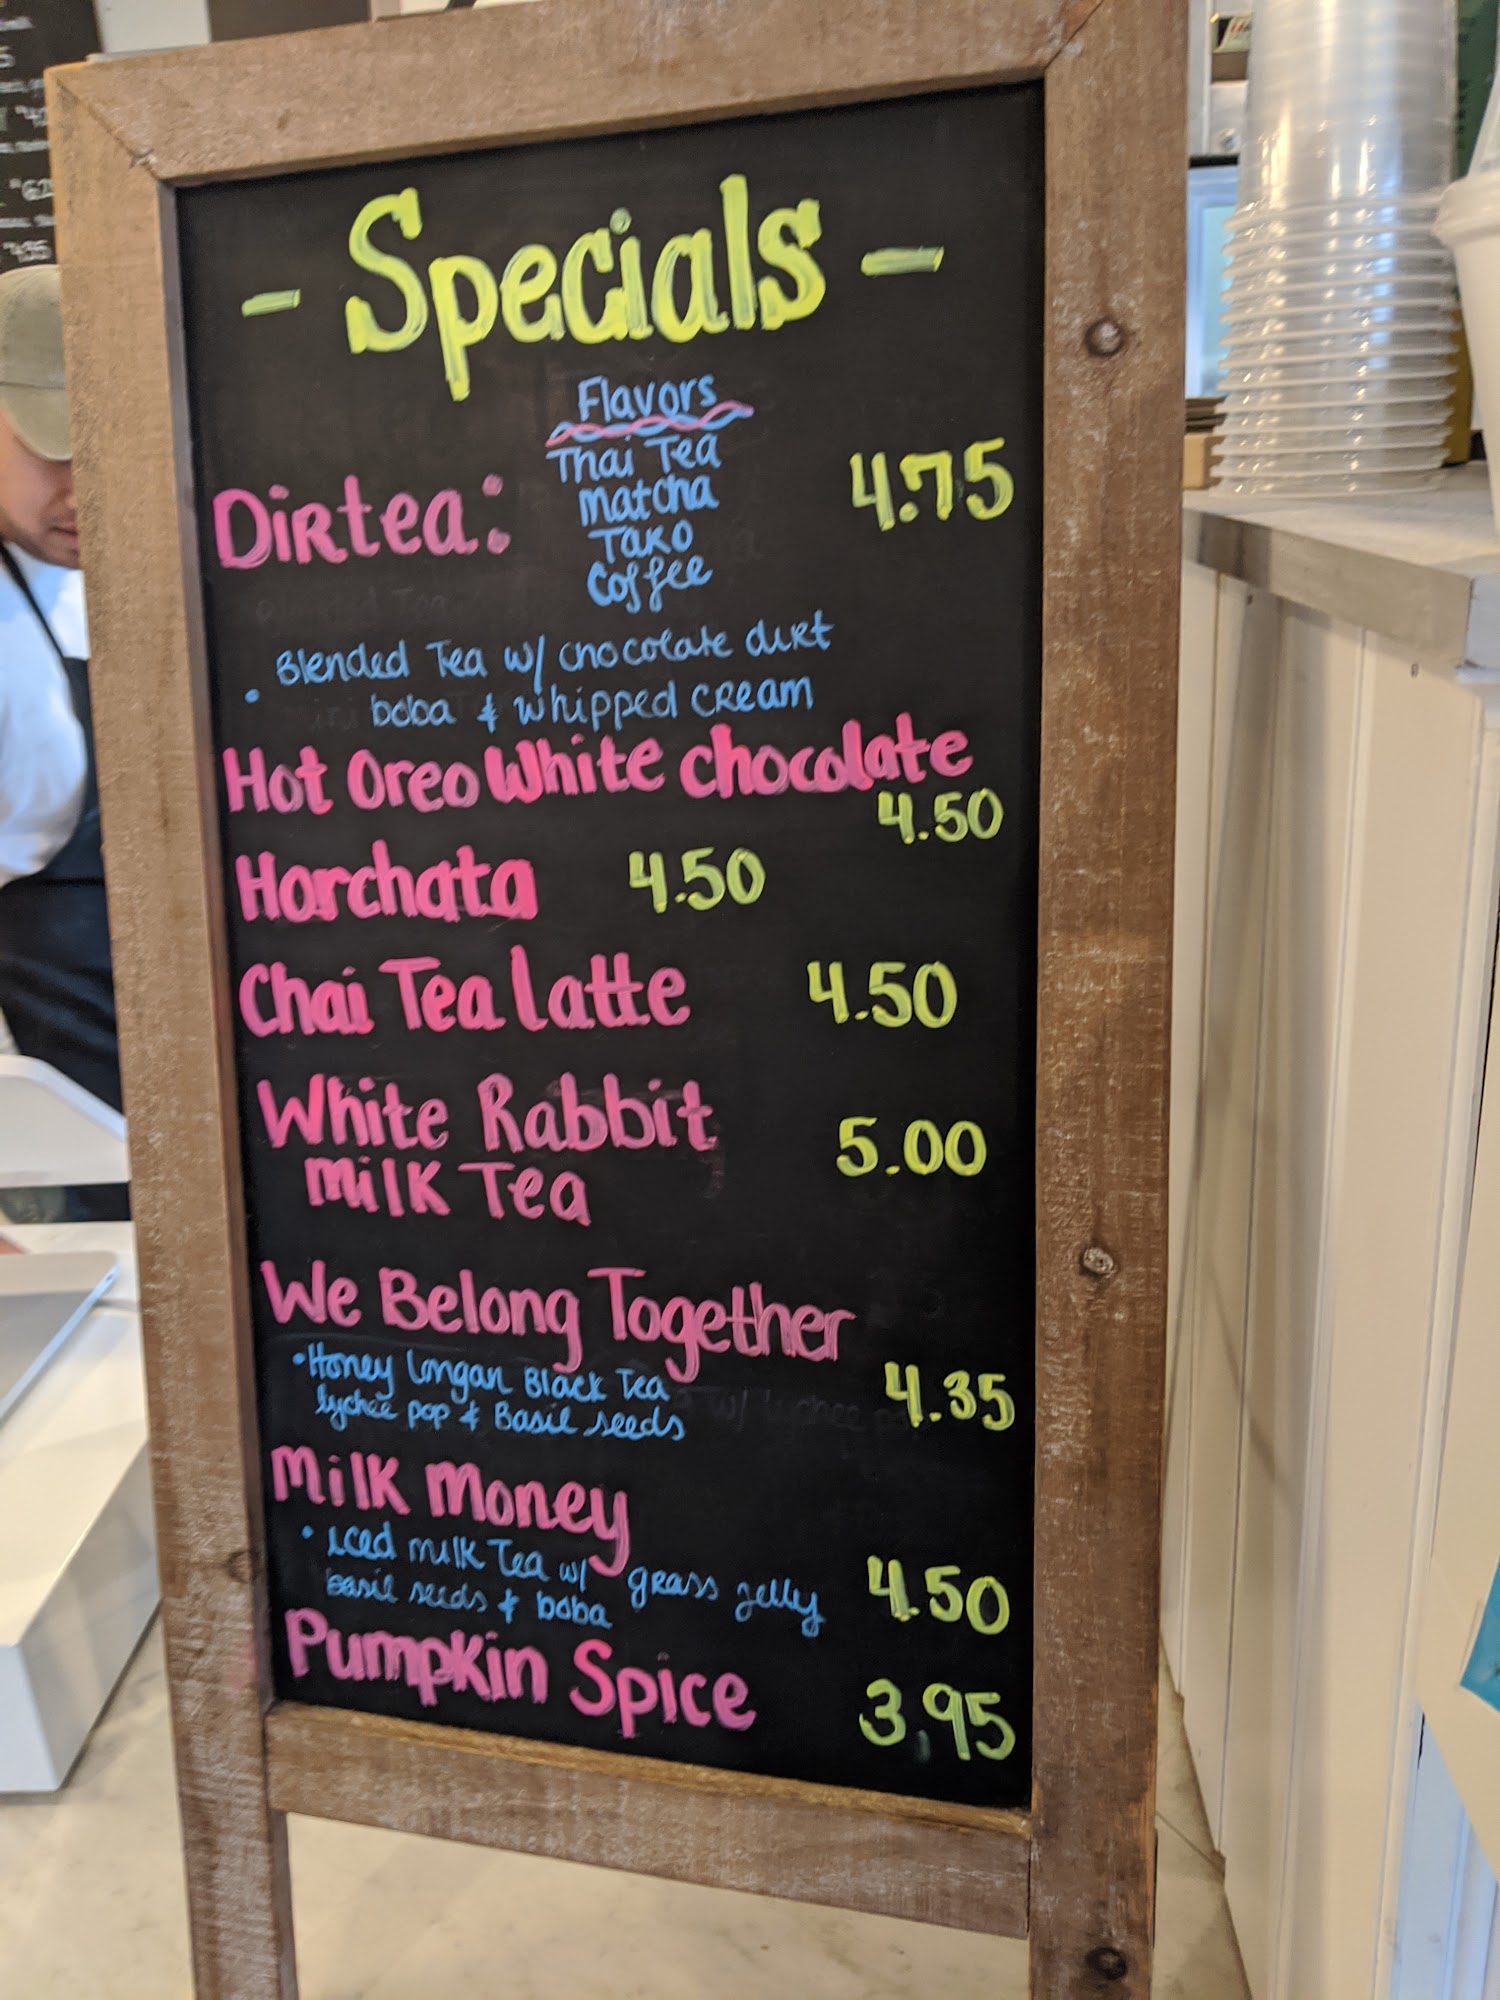 - Specials -
Flavors
Thai Tea
Matcha
Dirtea: 4.75
TaKo
Coffee
• Blended Tea w/ chocolate dirt
boba & whipped cream
Hot Oreo White chocolate
4.50
Horchata 4.50
Chai Tea latte 4.50
White Rabbit
milk Tea 5.00
We Belong Together
• Honey longan Black Tea
lychee pop & Basil seeds 4.35
Milk Money
• iced milk Tea w/ grass jelly
basil seeds & boba 4.50
Pumpkin Spice 3.95